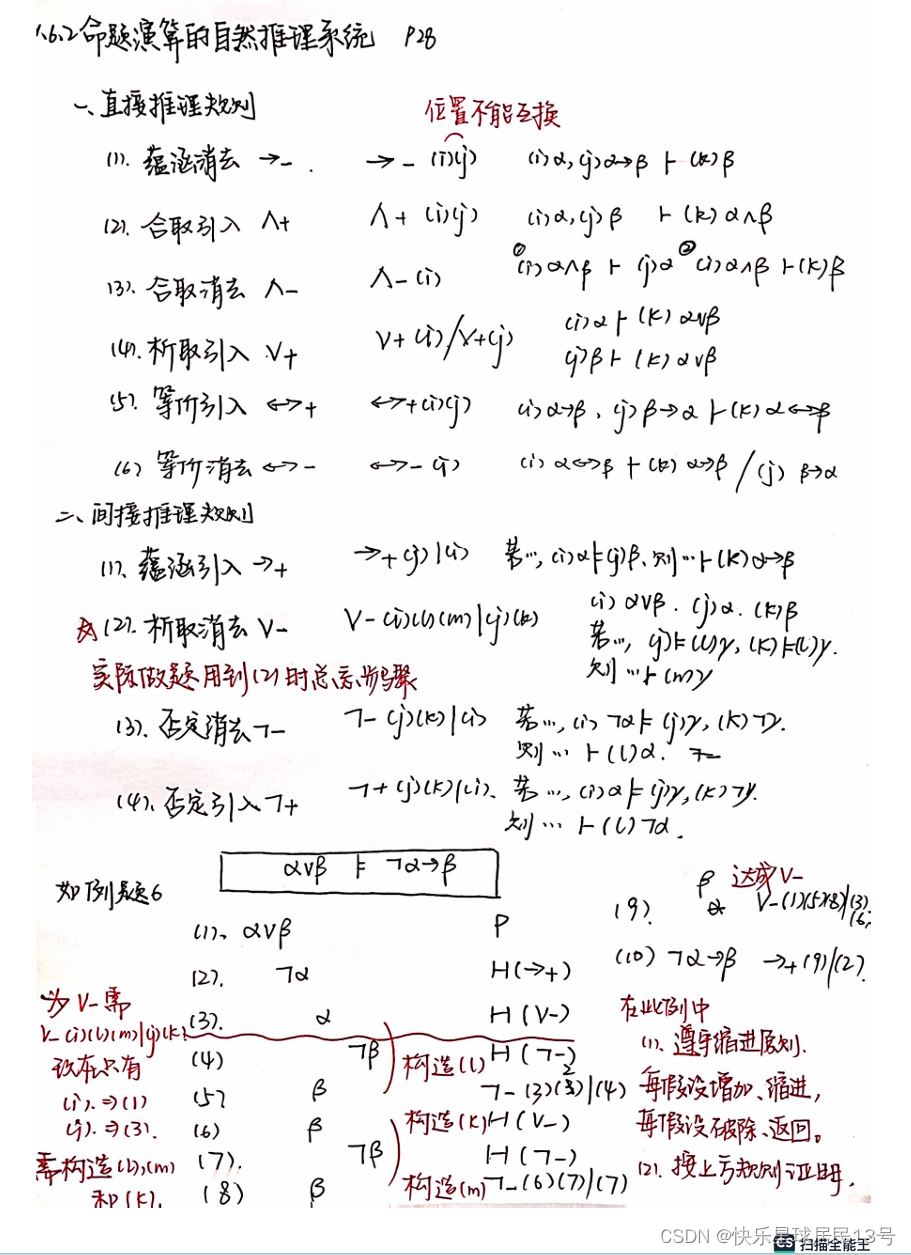 1.6.2 命题演算的自然推理系统 P28
一、直接推理规则
位置不能互换
(1). 蕴涵消去 →- . →- (i)(j) (i)α, (j)α→β ⊢ (k)β
(2). 合取引入 ∧+ ∧+ (i)(j) (i)α, (j)β ⊢ (k) α∧β
(3). 合取消去 ∧- ∧- (i) ①(i)α∧β ⊢ (j)α ②(i)α∧β ⊢ (k)β
(4). 析取引入 ∨+ ∨+ (i)/∨+(j) (i)α ⊢ (k) α∨β
(j)β ⊢ (k) α∨β
(5). 等价引入 ↔+ ↔+(i)(j) (i)α→β, (j)β→α ⊢ (k) α↔β
(6) 等价消去 ↔- ↔- (i) (i) α↔β ⊢ (k) α→β / (j) β→α
二、间接推理规则
(1). 蕴涵引入 →+ →+(j)|(i) 若…, (i)α⊨(j)β, 则…⊢(k)α→β
(2). 析取消去 ∨- ∨-(i)(l)(m)|(j)(k) (i) α∨β. (j)α. (k)β
若…, (j)⊨(l)γ, (k)⊨(l)γ.
则…⊢(m)γ
实际做题用到(2)时总忘步骤
(3). 否定消去 ¬- ¬- (j)(k)|(i) 若…, (i) ¬α ⊨ (j)γ, (k)¬γ.
则… ⊢ (l)α.
(4). 否定引入 ¬+ ¬+(j)(k)|(i). 若…, (i)α ⊨ (j)γ, (k)¬γ.
则… ⊢ (l)¬α.
如例题6
α∨β ⊨ ¬α→β
(1). α∨β P
(2). ¬α H(→+)
(3). α H(∨-)
(4) ¬β H(¬-)
(5) β ¬-(3)(2)|(4)
(6) β H(∨-)
(7). ¬β H(¬-)
(8) β ¬-(6)(7)|(7)
为∨-需
∨-(i)(l)(m)|(j)(k).
现在只有
(i).⇒(1)
(j).⇒(3).
需构造(l),(m)
和(k).
构造(l)
构造(k)
构造(m)
达成∨-
(9). β ∨-(1)(5)(8)|(3)(6)
(10) ¬α→β →+(9)|(2).
在此例中
(1). 遵守缩进原则.
每假设增加、缩进,
每假设被破除、返回。
(2). 按上方规则证明.
CSDN @快乐星球居民13号
CS 扫描全能王